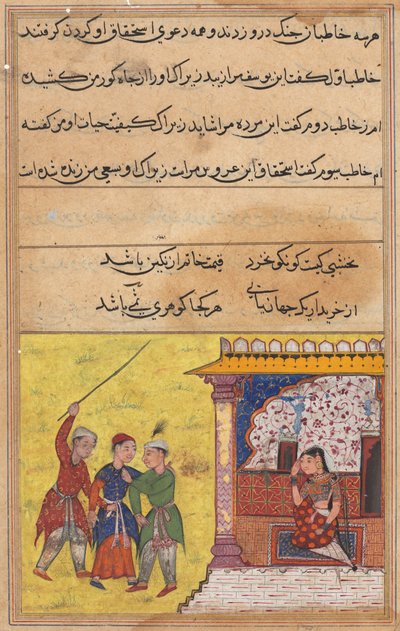 هر سه خاطب از جنک در و زدند و همه دعوی استحقاق او کردن کرفتند
خاطب اول کفت این یوسف مرا زیبد زیرا که او را از چاه کور من کشیده
ام خاطب دوم کفت این مرده مرا شاید زیرا که کیفیت حیات او من کفته
ام خاطب سوم کفت استحقاق این عروس مراست زیرا که او بسعی من زنده شده است
نخشبی کیست کو نکو نخرد قیمت خاتم از نکین باشد
از خریدار یک جهان یابی هر کجا کوهری ثمین باشد